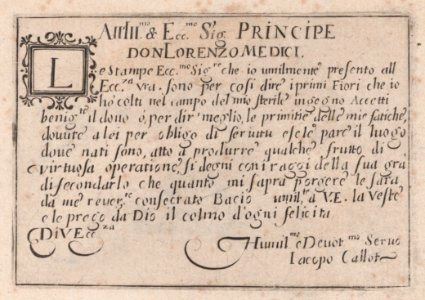 All Ill.mo & Ecc.mo Sig. PRINCIPE
DON LORENZO MEDICI.
Le Stampe Ecc.mo Sig.re che io umilmente presento all
Ecc.za vra. sono per cosi dire i primi Fiori che io
hò colti nel campo del mio sterile ingegno Accetti
benig.te il dono ò, per dir meglio, le primitie delle mie fatiche,
dovute a lei per obligo di seruitu e se le pare il luogo
doue nati sono, atto a produrre qualche frutto di
virtuosa operatione, si degni con i raggi della sua gra.
di secondarlo che quanto mi saprà porgere le sara
da me reuer.te consecrato Bacio umil.te a V.E. la Veste
e le prego da Dio il colmo d'ogni felicita
Di V Ecc.za
Humil.mo e Deuot.mo Seruo
Iacopo Callot